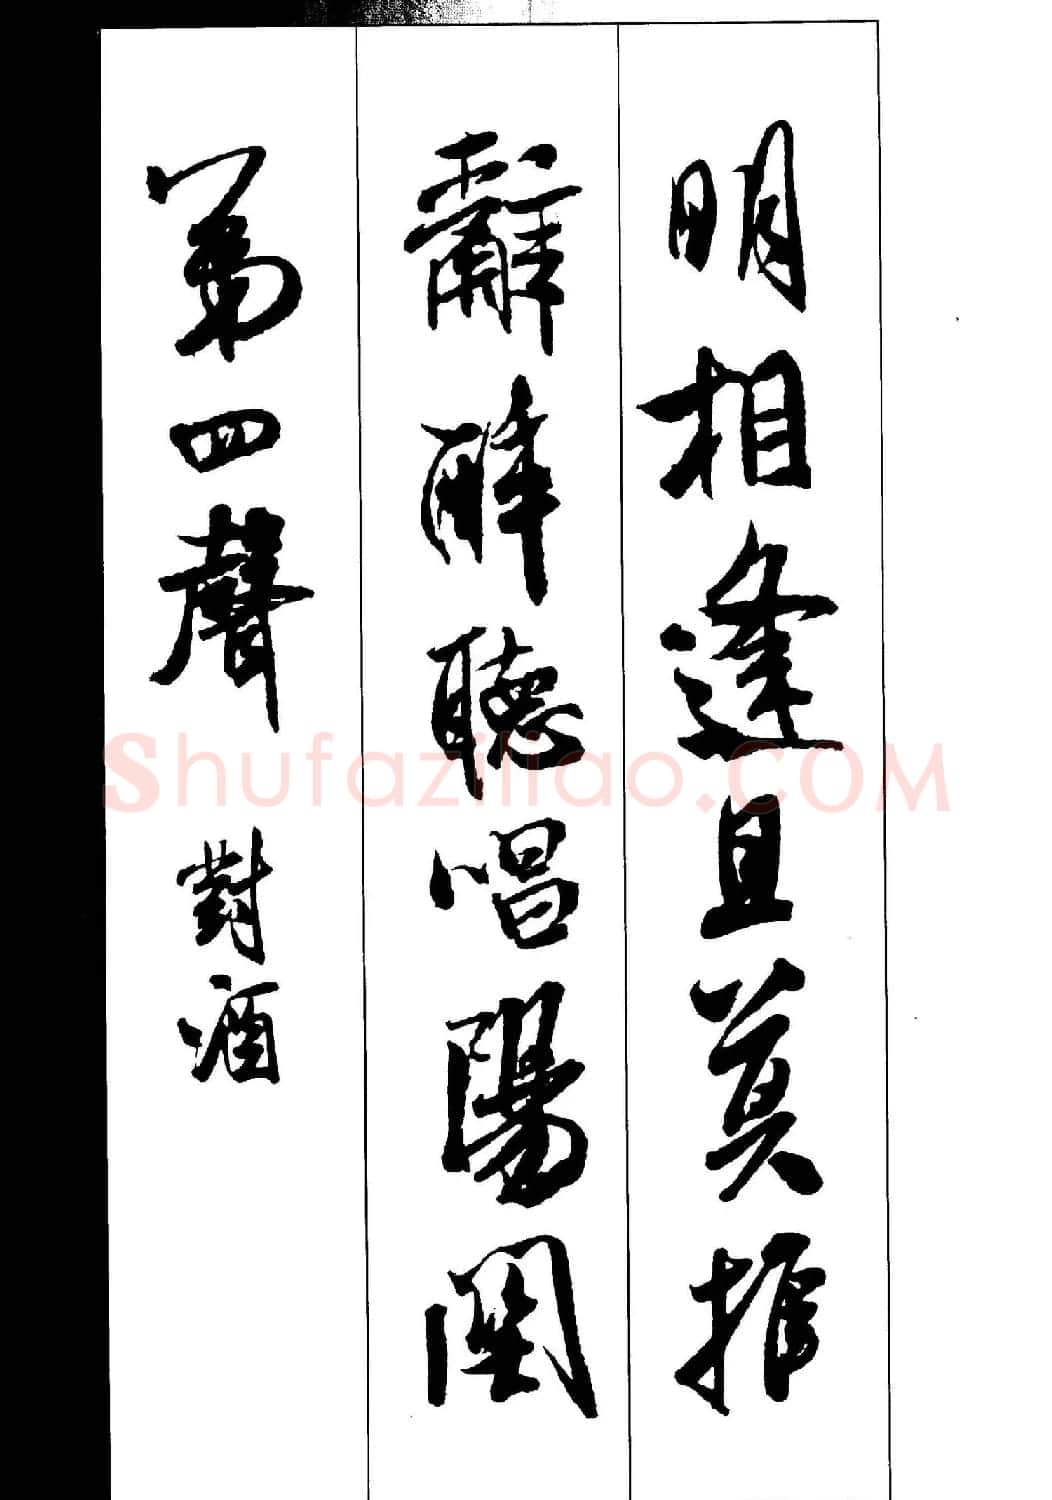 明相逢且莫推
辭醉聽唱陽関
第四聲 對酒
Shufaziliao.COM